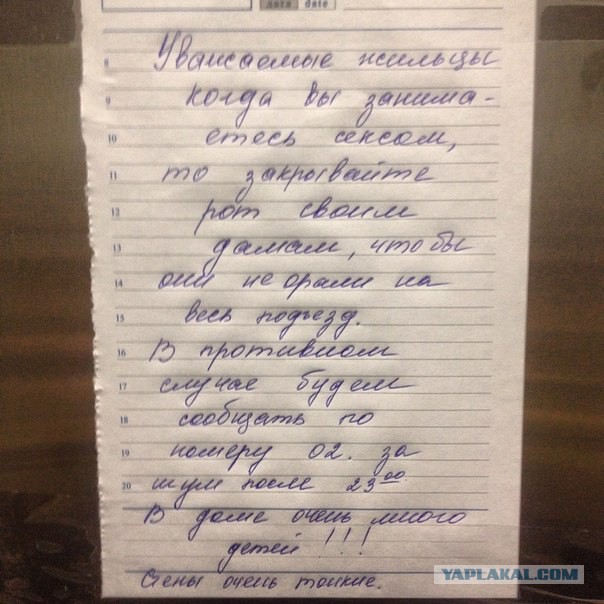 дата date
8 Уважаемые жильцы
9 когда вы занима-
10 етесь сексом,
11 то закрывайте
12 рот своим
13 дамам, чтобы
14 они не орали на
15 весь подъезд.
16 В противном
17 случае будем
18 сообщать по
19 номеру 02. за
20 шум после 23⁰⁰
В доме очень много
детей!!!
Стены очень тонкие.
YAPLAKAL.COM